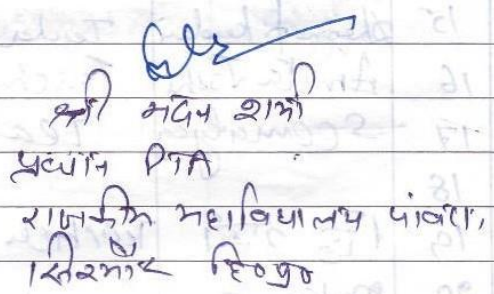 श्री मदन शर्मा
प्रधान PTA
राजकीय महाविद्यालय पांवटा,
सिरमौर हि०प्र०